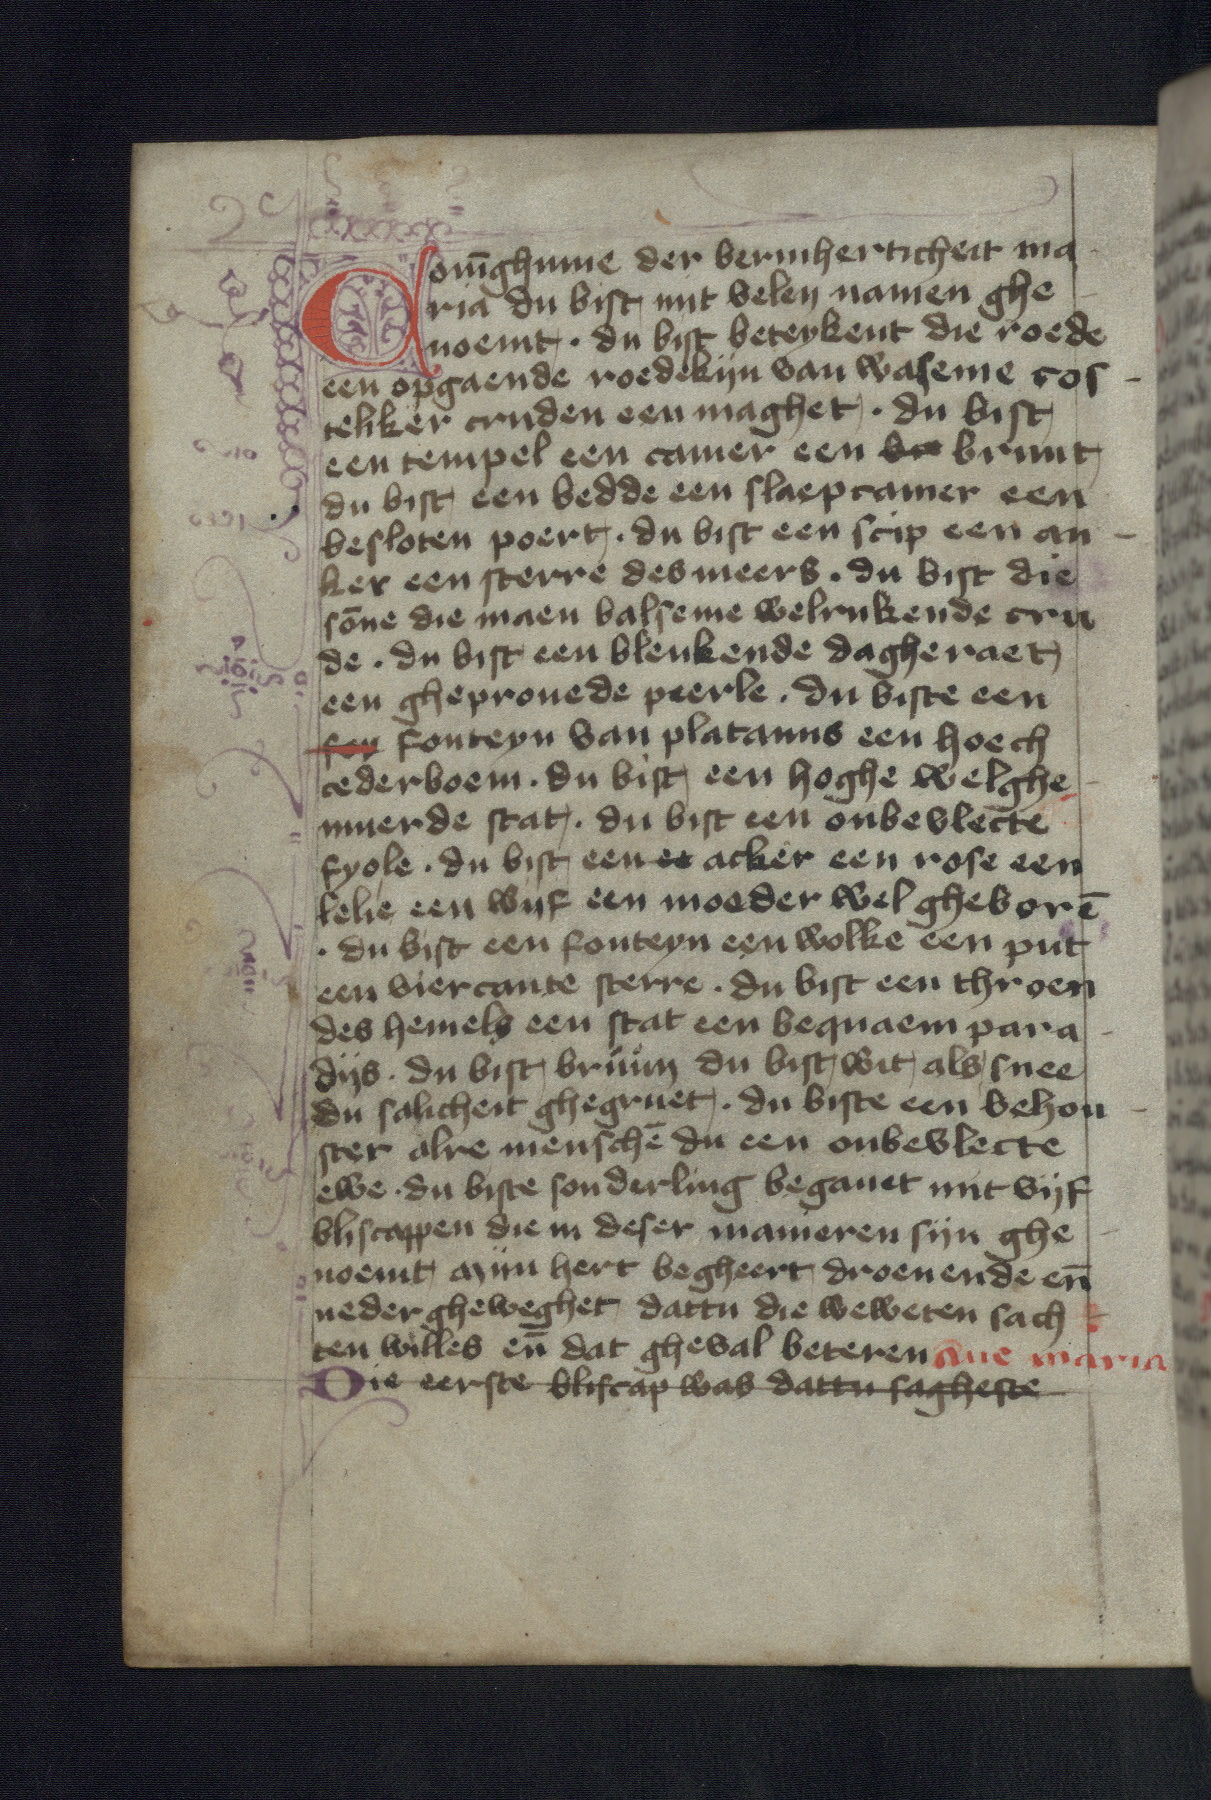 Coni̅ghinne der bermherticheit ma
ria du bist mit velen namen ghe
noemt. du bist beteykent die roede
een opgaende roedekijn van waseme cos
teliker cruden een maghet. du bist
een tempel een camer een be bruut
du bist een bedde een slaepcamer een
besloten poert. du bist een scip een an
ker een sterre des meers. du bist die
so̅ne die maen balseme welrukende cru
de. du bist een blenkende dagheraet
een gheprouede peerle. du biste een
fon fonteyn van platanus een hoech
cederboem. du bist een hoghe welghe
muerde stat. du bist een onbevlecte
fyole. du bist een ee acker een rose een
lelie een wijf een moeder wel ghebore̅
. du bist een fonteyn een wolke een put
een viercante sterre. du bist een throen
des hemels een stat een bequaem para
dijs. du bist bruun du bist wit als snee
du salicheit ghegruet. du biste een behou
ster alre mensche̅ du een onbevlecte
ewe. du biste sonderling begauet mit vijf
bliscappen die in deser manieren sijn ghe
noemt mijn hert begheert droeuende en̅
neder gheweghet dattu die weweten sach
ten willes en̅ dat gheval beteren aue maria
Die eerste bliscap was dattu sagheste